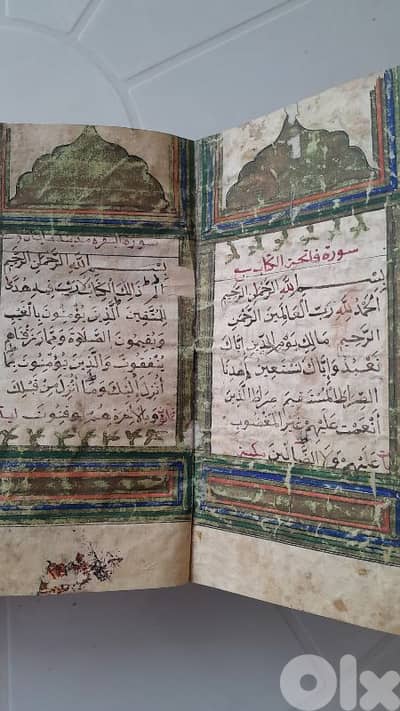 سورة فاتحة الكتاب
بسم الله الرحمن الرحيم
الحمد لله رب العالمين الرحمن
الرحيم مالك يوم الدين إياك
نعبد وإياك نستعين اهدنا
الصراط المستقيم صراط الذين
أنعمت عليهم غير المغضوب
عليهم ولا الضالين
سورة البقرة
بسم الله الرحمن الرحيم
الم ذلك الكتاب لا ريب فيه هدى
للمتقين الذين يؤمنون بالغيب
ويقيمون الصلوة ومما رزقناهم
ينفقون والذين يؤمنون بما
أنزل إليك وما أنزل من قبلك
وبالآخرة هم يوقنون
Olx